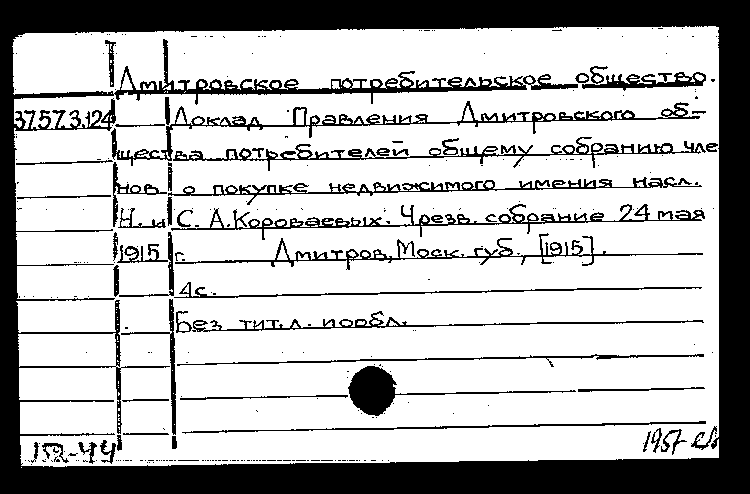 Дмитровское потребительское общество.
37.57.3.124 Доклад Правления Дмитровского об-
щества потребителей общему собранию чле
нов о покупке недвижимого имения насл.
Н. и С. А. Короваевых. Чрезв. собрание 24 мая
1915 г. Дмитров, Моск. губ., [1915].
4с.
Без тит. л. и обл.
152-44
1957